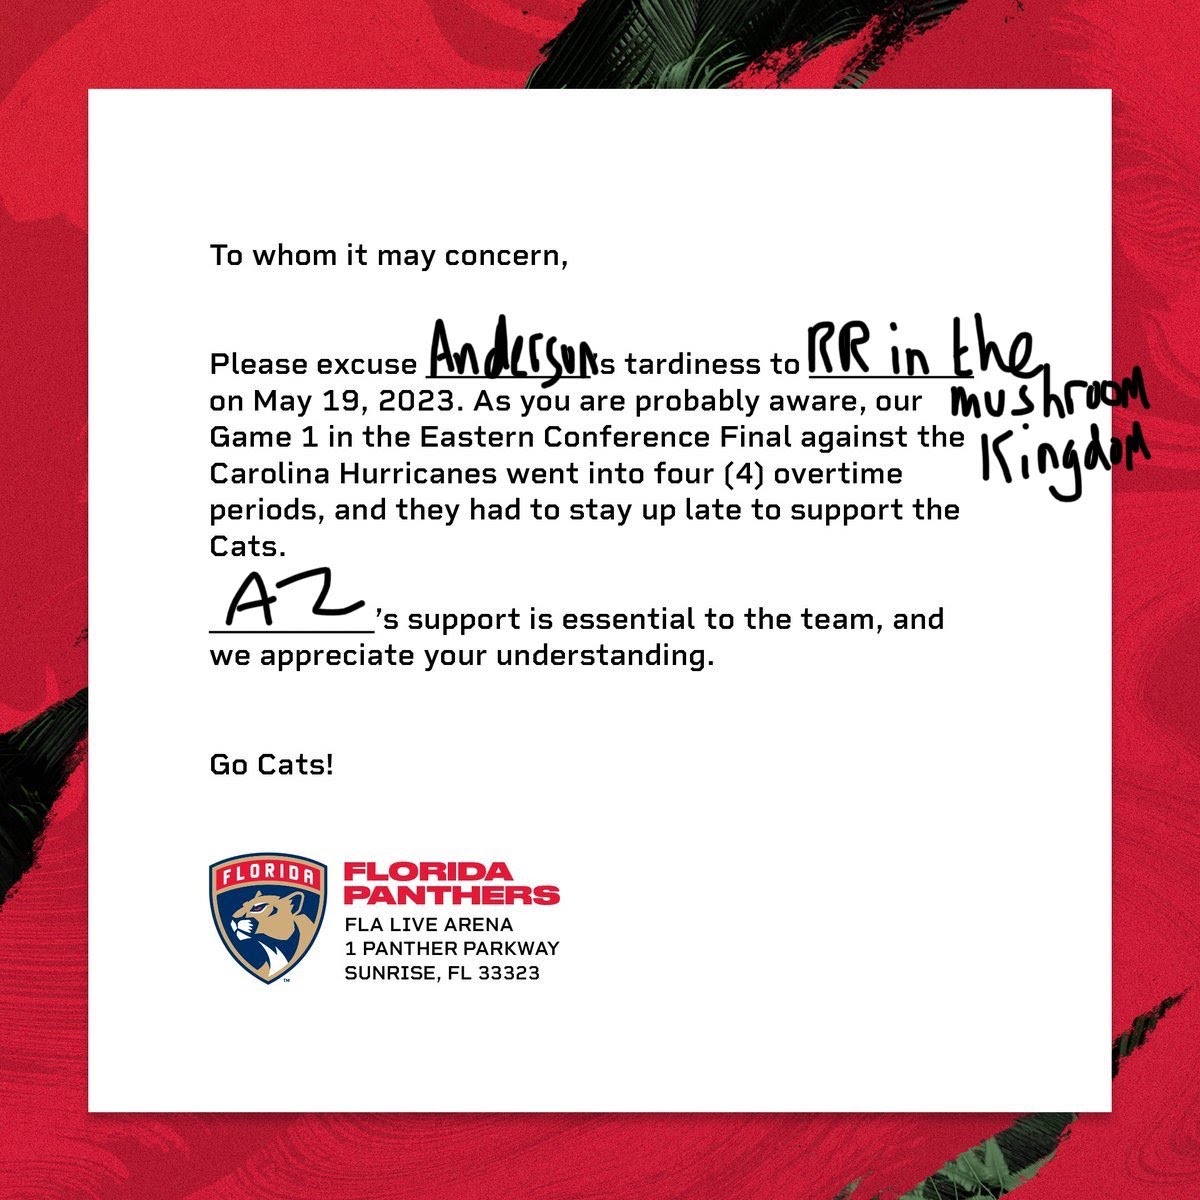 To whom it may concern,
Please excuse Anderson's tardiness to RR in the
on May 19, 2023. As you are probably aware, our mushroom
Game 1 in the Eastern Conference Final against the Kingdom
Carolina Hurricanes went into four (4) overtime
periods, and they had to stay up late to support the
Cats.
AZ's support is essential to the team, and
we appreciate your understanding.
Go Cats!
FLORIDA
FLORIDA
PANTHERS
FLA LIVE ARENA
1 PANTHER PARKWAY
SUNRISE, FL 33323
TM